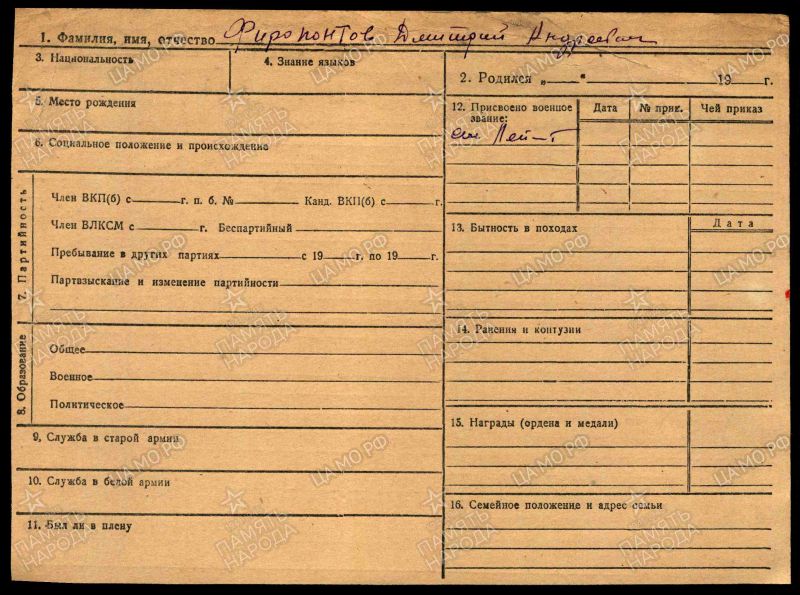 1. Фамилия, имя, отчество Фиропонтов Дмитрий Андреевич
3. Национальность
4. Знание языков
2. Родился „ “ 19 г.
5. Место рождения
6. Социальное положение и происхождение
7. Партийность
Член ВКП(б) с г. п. б. № Канд. ВКП(б) с г.
Член ВЛКСМ с г. Беспартийный
Пребывание в других партиях с 19 г. по 19 г.
Партвзыскание и изменение партийности
8. Образование
Общее
Военное
Политическое
9. Служба в старой армии
10. Служба в белой армии
11. Был ли в плену
12. Присвоено военное звание:
Дата № прик. Чей приказ
Лей-т
13. Бытность в походах
Дата
14. Ранения и контузии
15. Награды (ордена и медали)
16. Семейное положение и адрес семьи
ПАМЯТЬ НАРОДА
ЦАМО.РФ